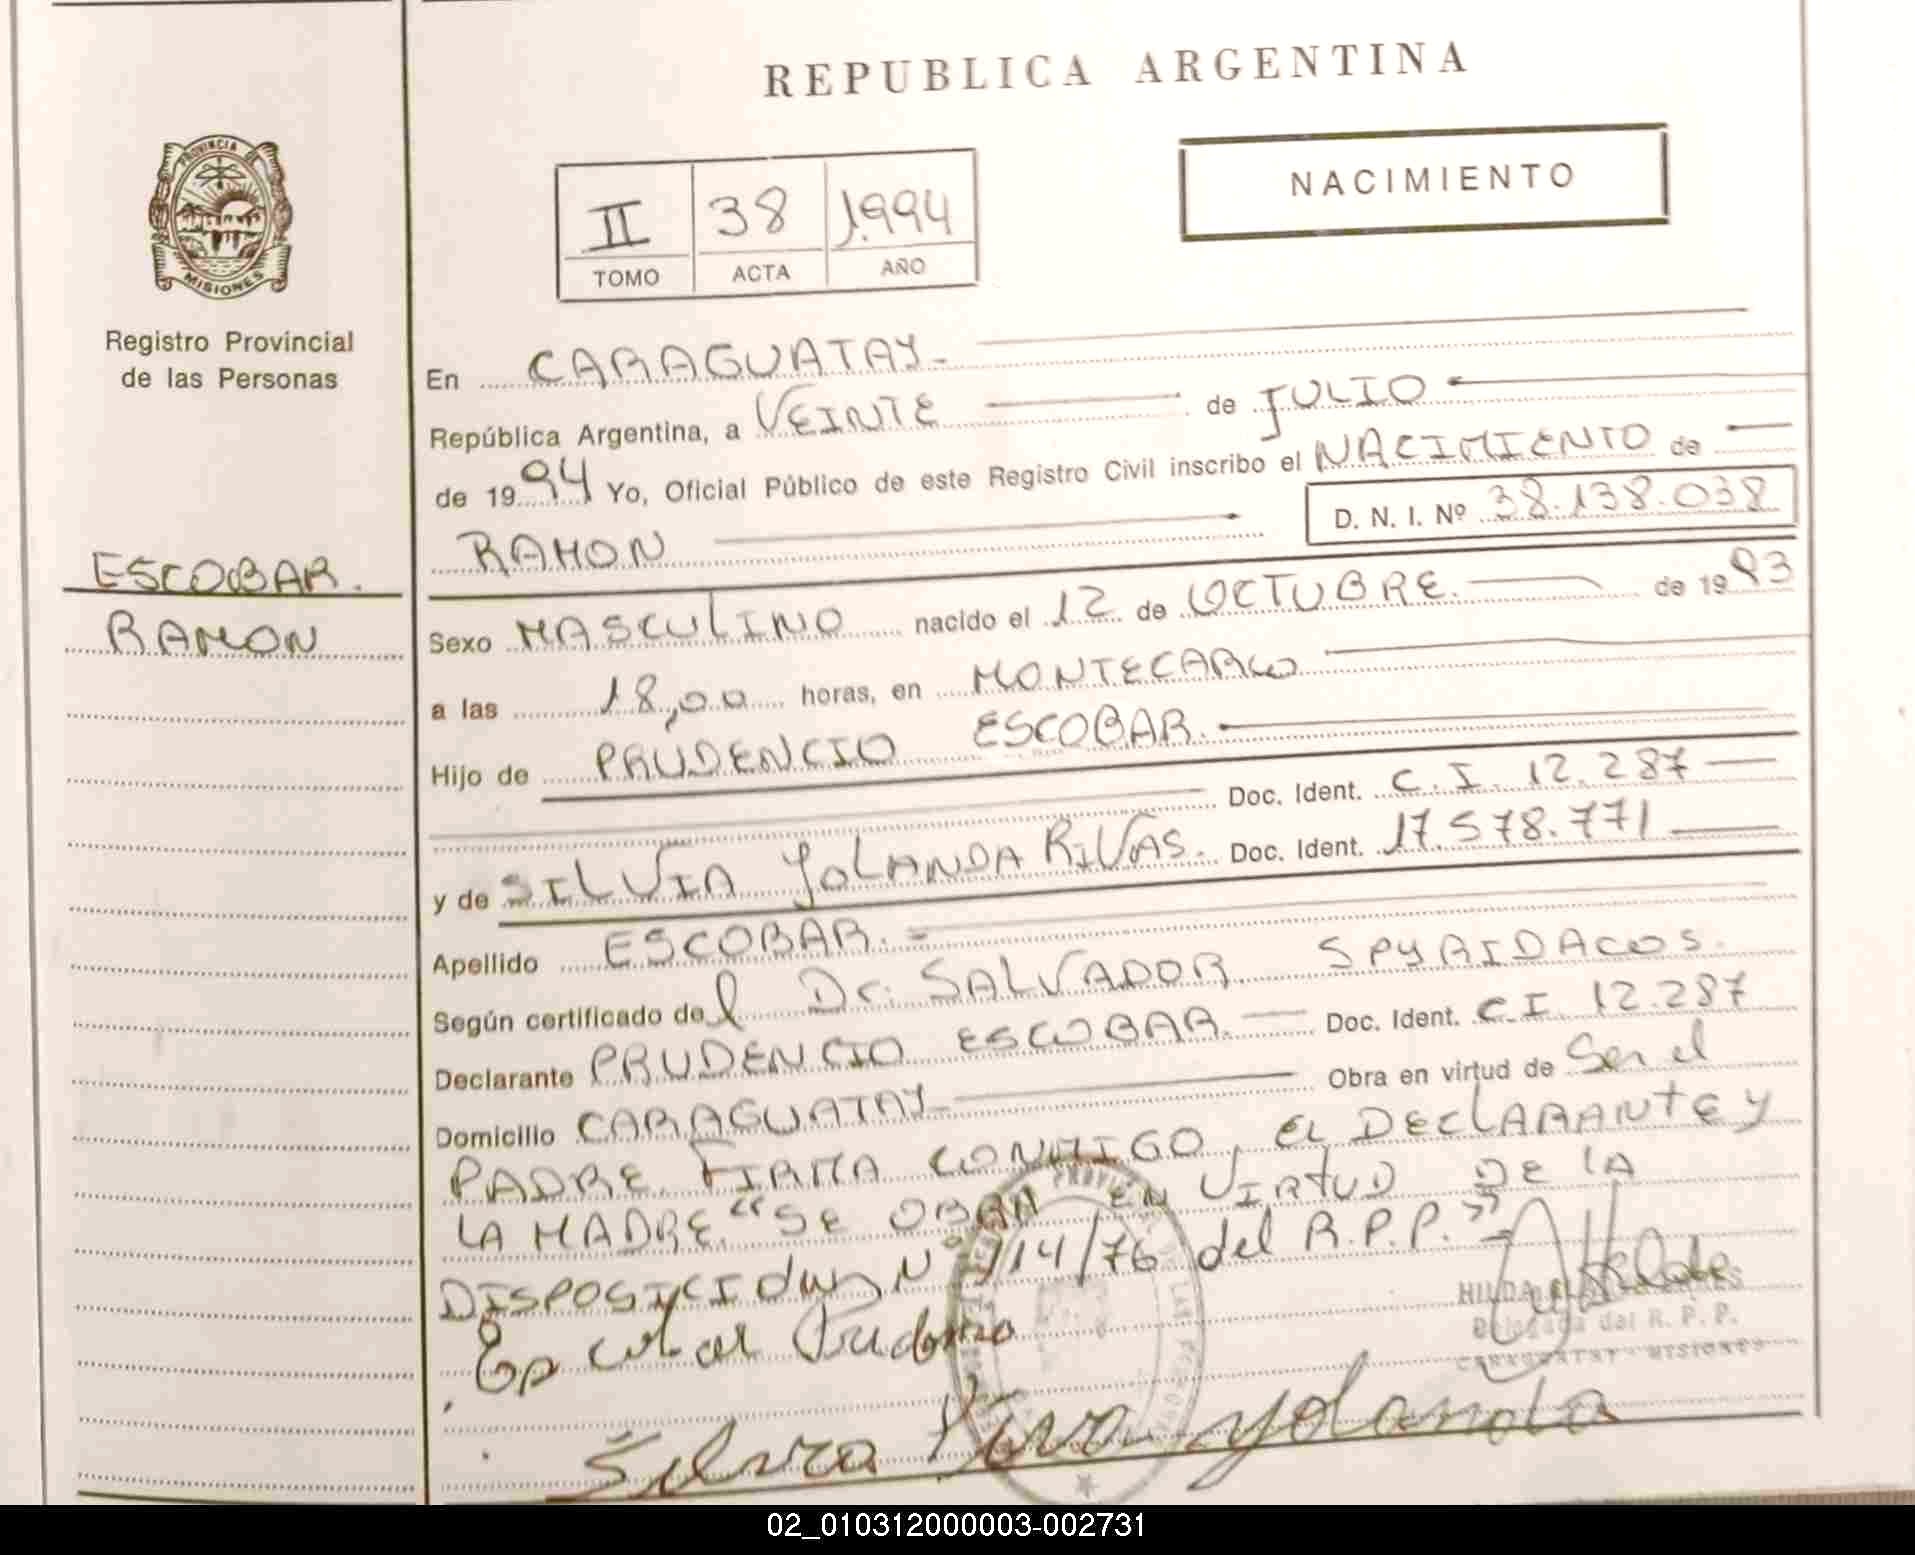 REPUBLICA ARGENTINA
PROVINCIA DE
MISIONES
Registro Provincial
de las Personas
ESCOBAR.
RAMON
NACIMIENTO
II 38 1.994
TOMO ACTA AÑO
En CARAGUATAY-
República Argentina, a VEINTE de JULIO
de 1994 Yo, Oficial Público de este Registro Civil inscribo el NACIMIENTO de
RAMON D. N. I. Nº 38.138.038
Sexo MASCULINO nacido el 12 de OCTUBRE. de 1993
a las 18,00 horas, en MONTECARLO
Hijo de PRUDENCIO ESCOBAR.
Doc. Ident. C.I. 12.287
y de SILVIA YOLANDA RIVAS. Doc. Ident. 17.578.771
Apellido ESCOBAR.
Según certificado del Dr. SALVADOR SPYRIDACOS.
Declarante PRUDENCIO ESCOBAR. Doc. Ident. C.I. 12.287
Domicilio CARAGUATAY- Obra en virtud de Ser el
PADRE. FIRMA CONMIGO, EL DECLARANTE Y
LA MADRE. "SE OBRA EN VIRTUD DE LA
DISPOSICION Nº 114/76 del R.P.P."
HILDA
Delegada del R. P. P.
CARAGUATAY - MISIONES
Escobar Prudencio
Silvia Riva Yolanda
02_010312000003-002731